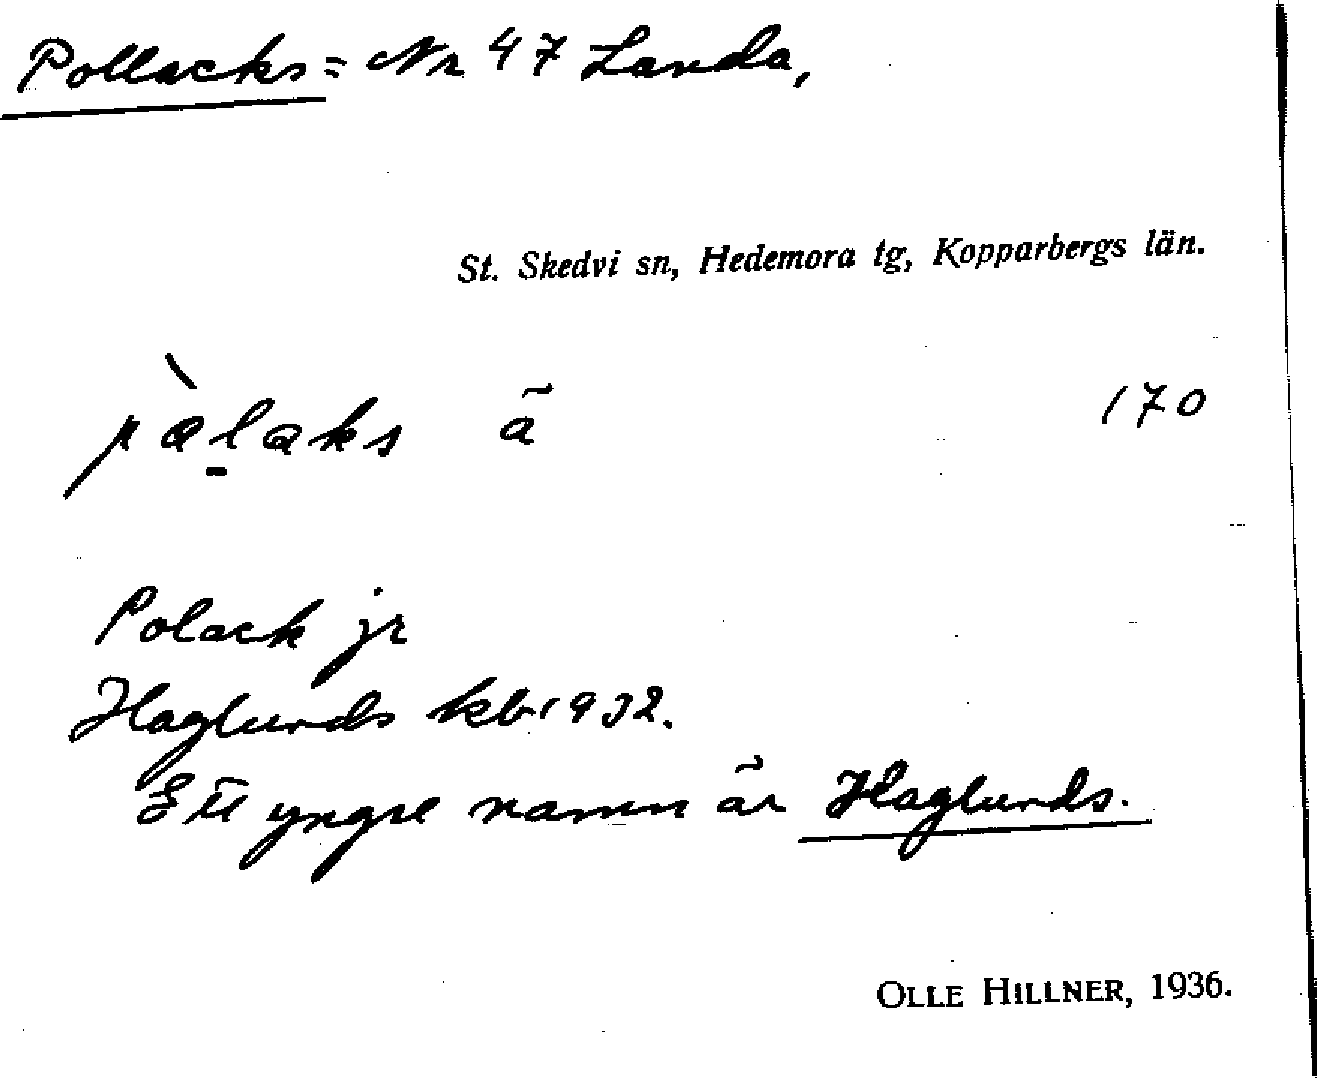 Pollacks = Nr 47 Landa,
St. Skedvi sn, Hedemora tg, Kopparbergs län.
pàl̠aks ã 170
Polack jr
Haglunds kb 1932.
Ett yngre namn är Haglunds.
OLLE HILLNER, 1936.